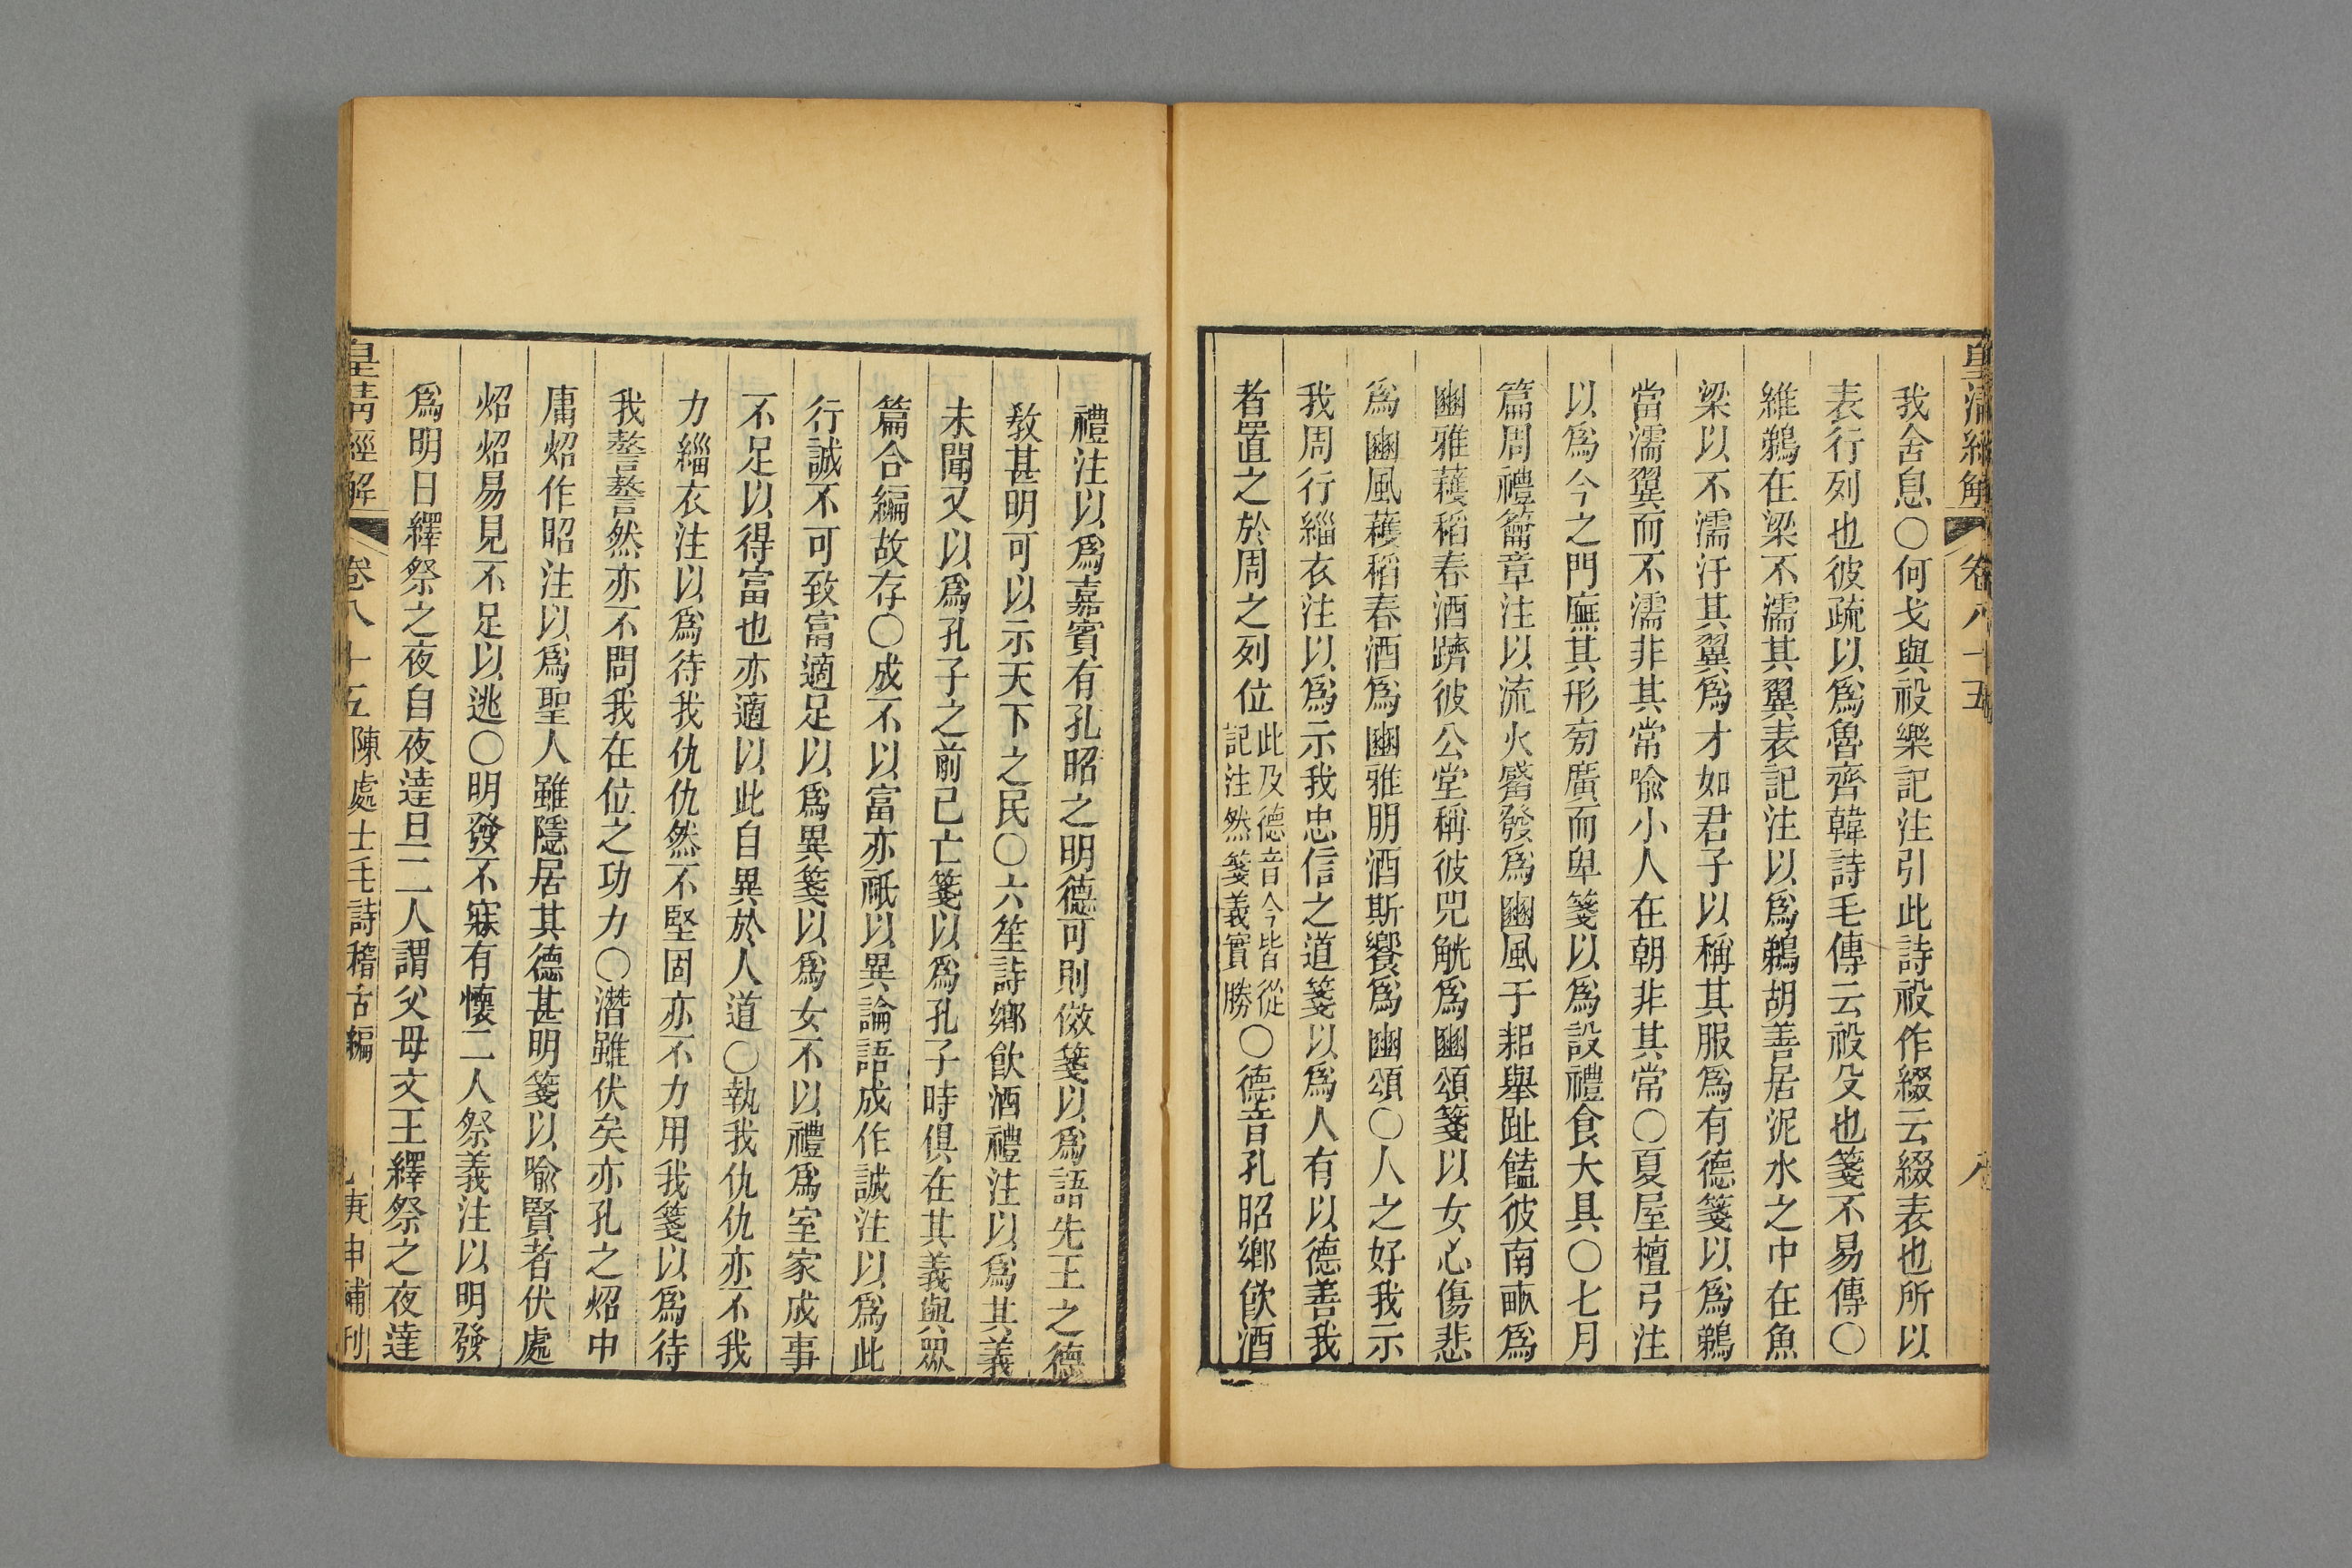 皇清經解
卷八十五
八
我舍息〇何戈與祋樂記注引此詩祋作綴云綴表也所以
表行列也彼疏以爲魯齊韓詩毛傳云祋殳也箋不易傳〇
維鵜在梁不濡其翼表記注以爲鵜胡善居泥水之中在魚
梁以不濡汙其翼爲才如君子以稱其服爲有德箋以爲鵜
當濡翼而不濡非其常喩小人在朝非其常〇夏屋檀弓注
以爲今之門廡其形㫄廣而卑箋以爲設禮食大具〇七月
篇周禮籥章注以流火觱發爲豳風于耜舉趾饁彼南畝爲
豳雅穫稻春酒躋彼公堂稱彼兕觥爲豳頌箋以女心傷悲
爲豳風穫稻春酒爲豳雅朋酒斯饗爲豳頌〇人之好我示
我周行緇衣注以爲示我忠信之道箋以爲人有以德善我
者置之於周之列位此及德音今皆從記注然箋義實勝〇德音孔昭鄉飮酒
禮注以爲嘉賓有孔昭之明德可則傚箋以爲語先王之德
敎甚明可以示天下之民〇六笙詩鄉飮酒禮注以爲其義
未聞又以爲孔子之前已亡箋以爲孔子時俱在其義與眾
篇合編故存〇成不以富亦祇以異論語成作誠注以爲此
行誠不可致富適足以爲異箋以爲女不以禮爲室家成事
不足以得富也亦適以此自異於人道〇執我仇仇亦不我
力緇衣注以爲待我仇仇然不堅固亦不力用我箋以爲待
我謷謷然亦不問我在位之功力〇潛雖伏矣亦孔之炤中
庸炤作昭注以爲聖人雖隱居其德甚明箋以喩賢者伏處
炤炤易見不足以逃〇明發不寐有懷二人祭義注以明發
爲明日繹祭之夜自夜逹旦二人謂父母文王繹祭之夜逹
皇清經解
卷八十五
陳處士毛詩稽古編
庚申補刊